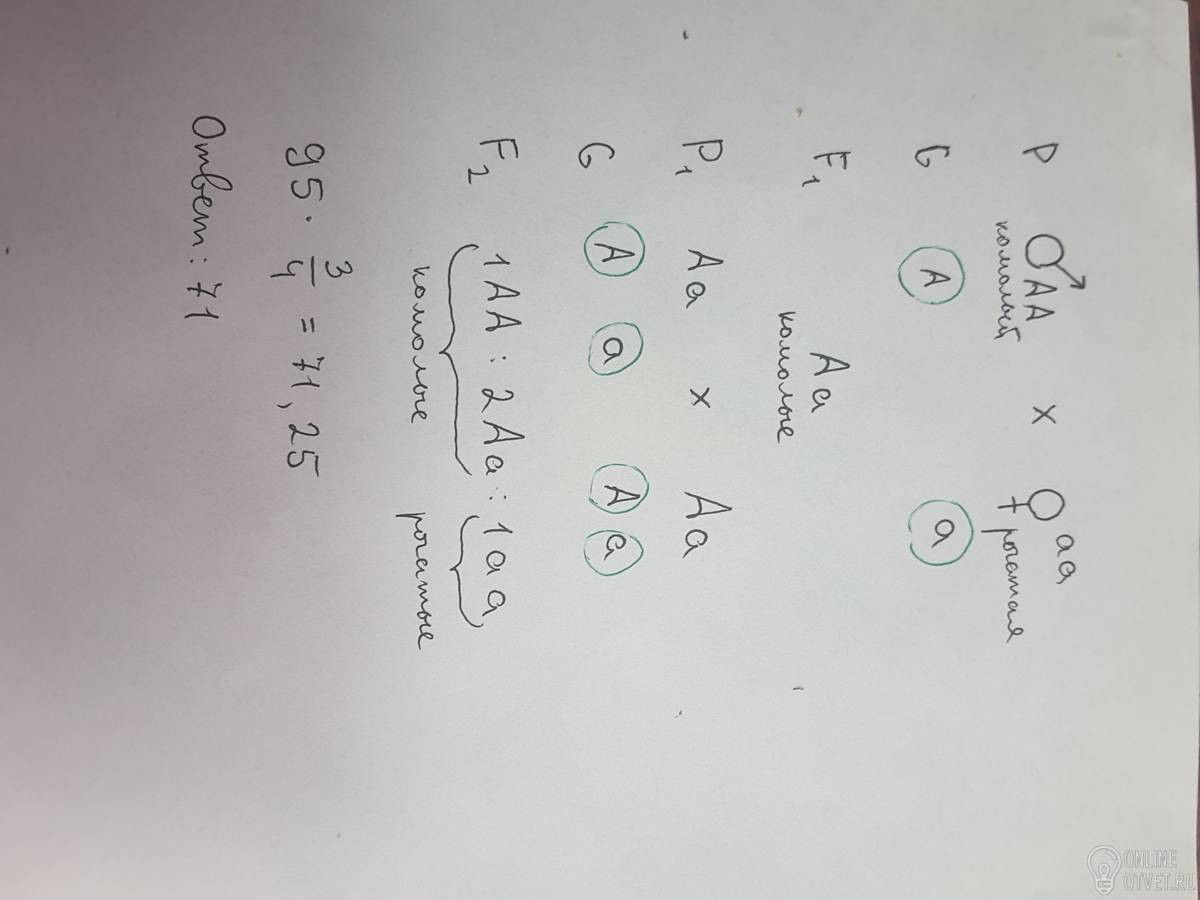 P ♂AA x ♀aa
комолый рогатая
G A a
F1 Aa
комолые
P1 Aa x Aa
G A a A a
F2 1AA : 2Aa : 1aa
комолые рогатые
95 · 3/4 = 71,25
Ответ: 71
ONLINE
OTVET.RU